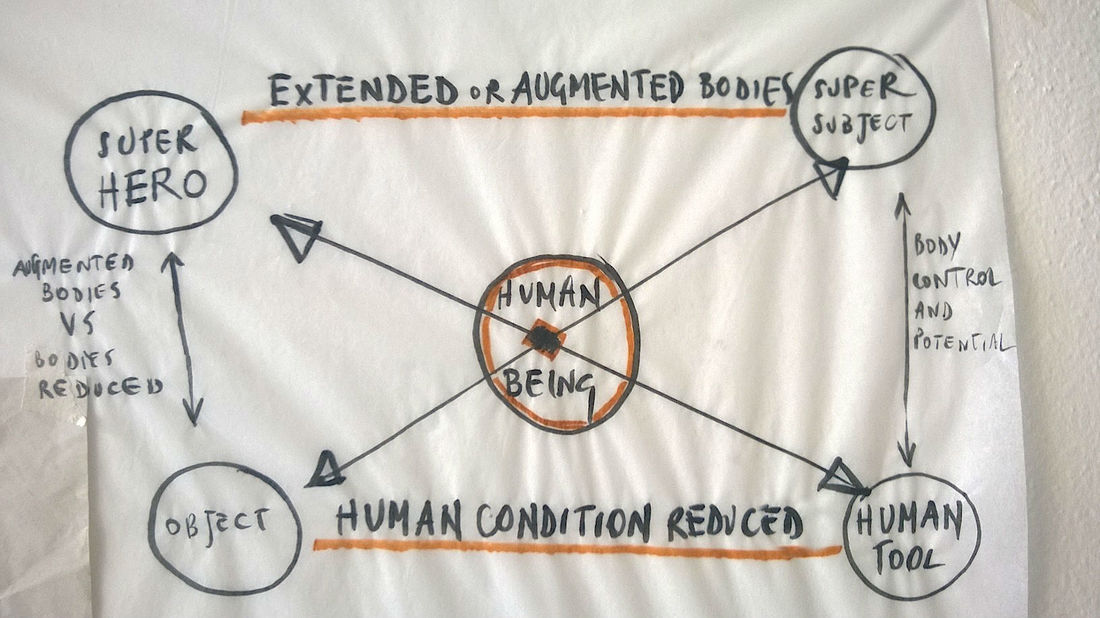 EXTENDED OR AUGMENTED BODIES
SUPER
HERO
SUPER
SUBJECT
AUGMENTED
BODIES
VS
BODIES
REDUCED
HUMAN
BEING
BODY
CONTROL
AND
POTENTIAL
OBJECT
HUMAN CONDITION REDUCED
HUMAN
TOOL